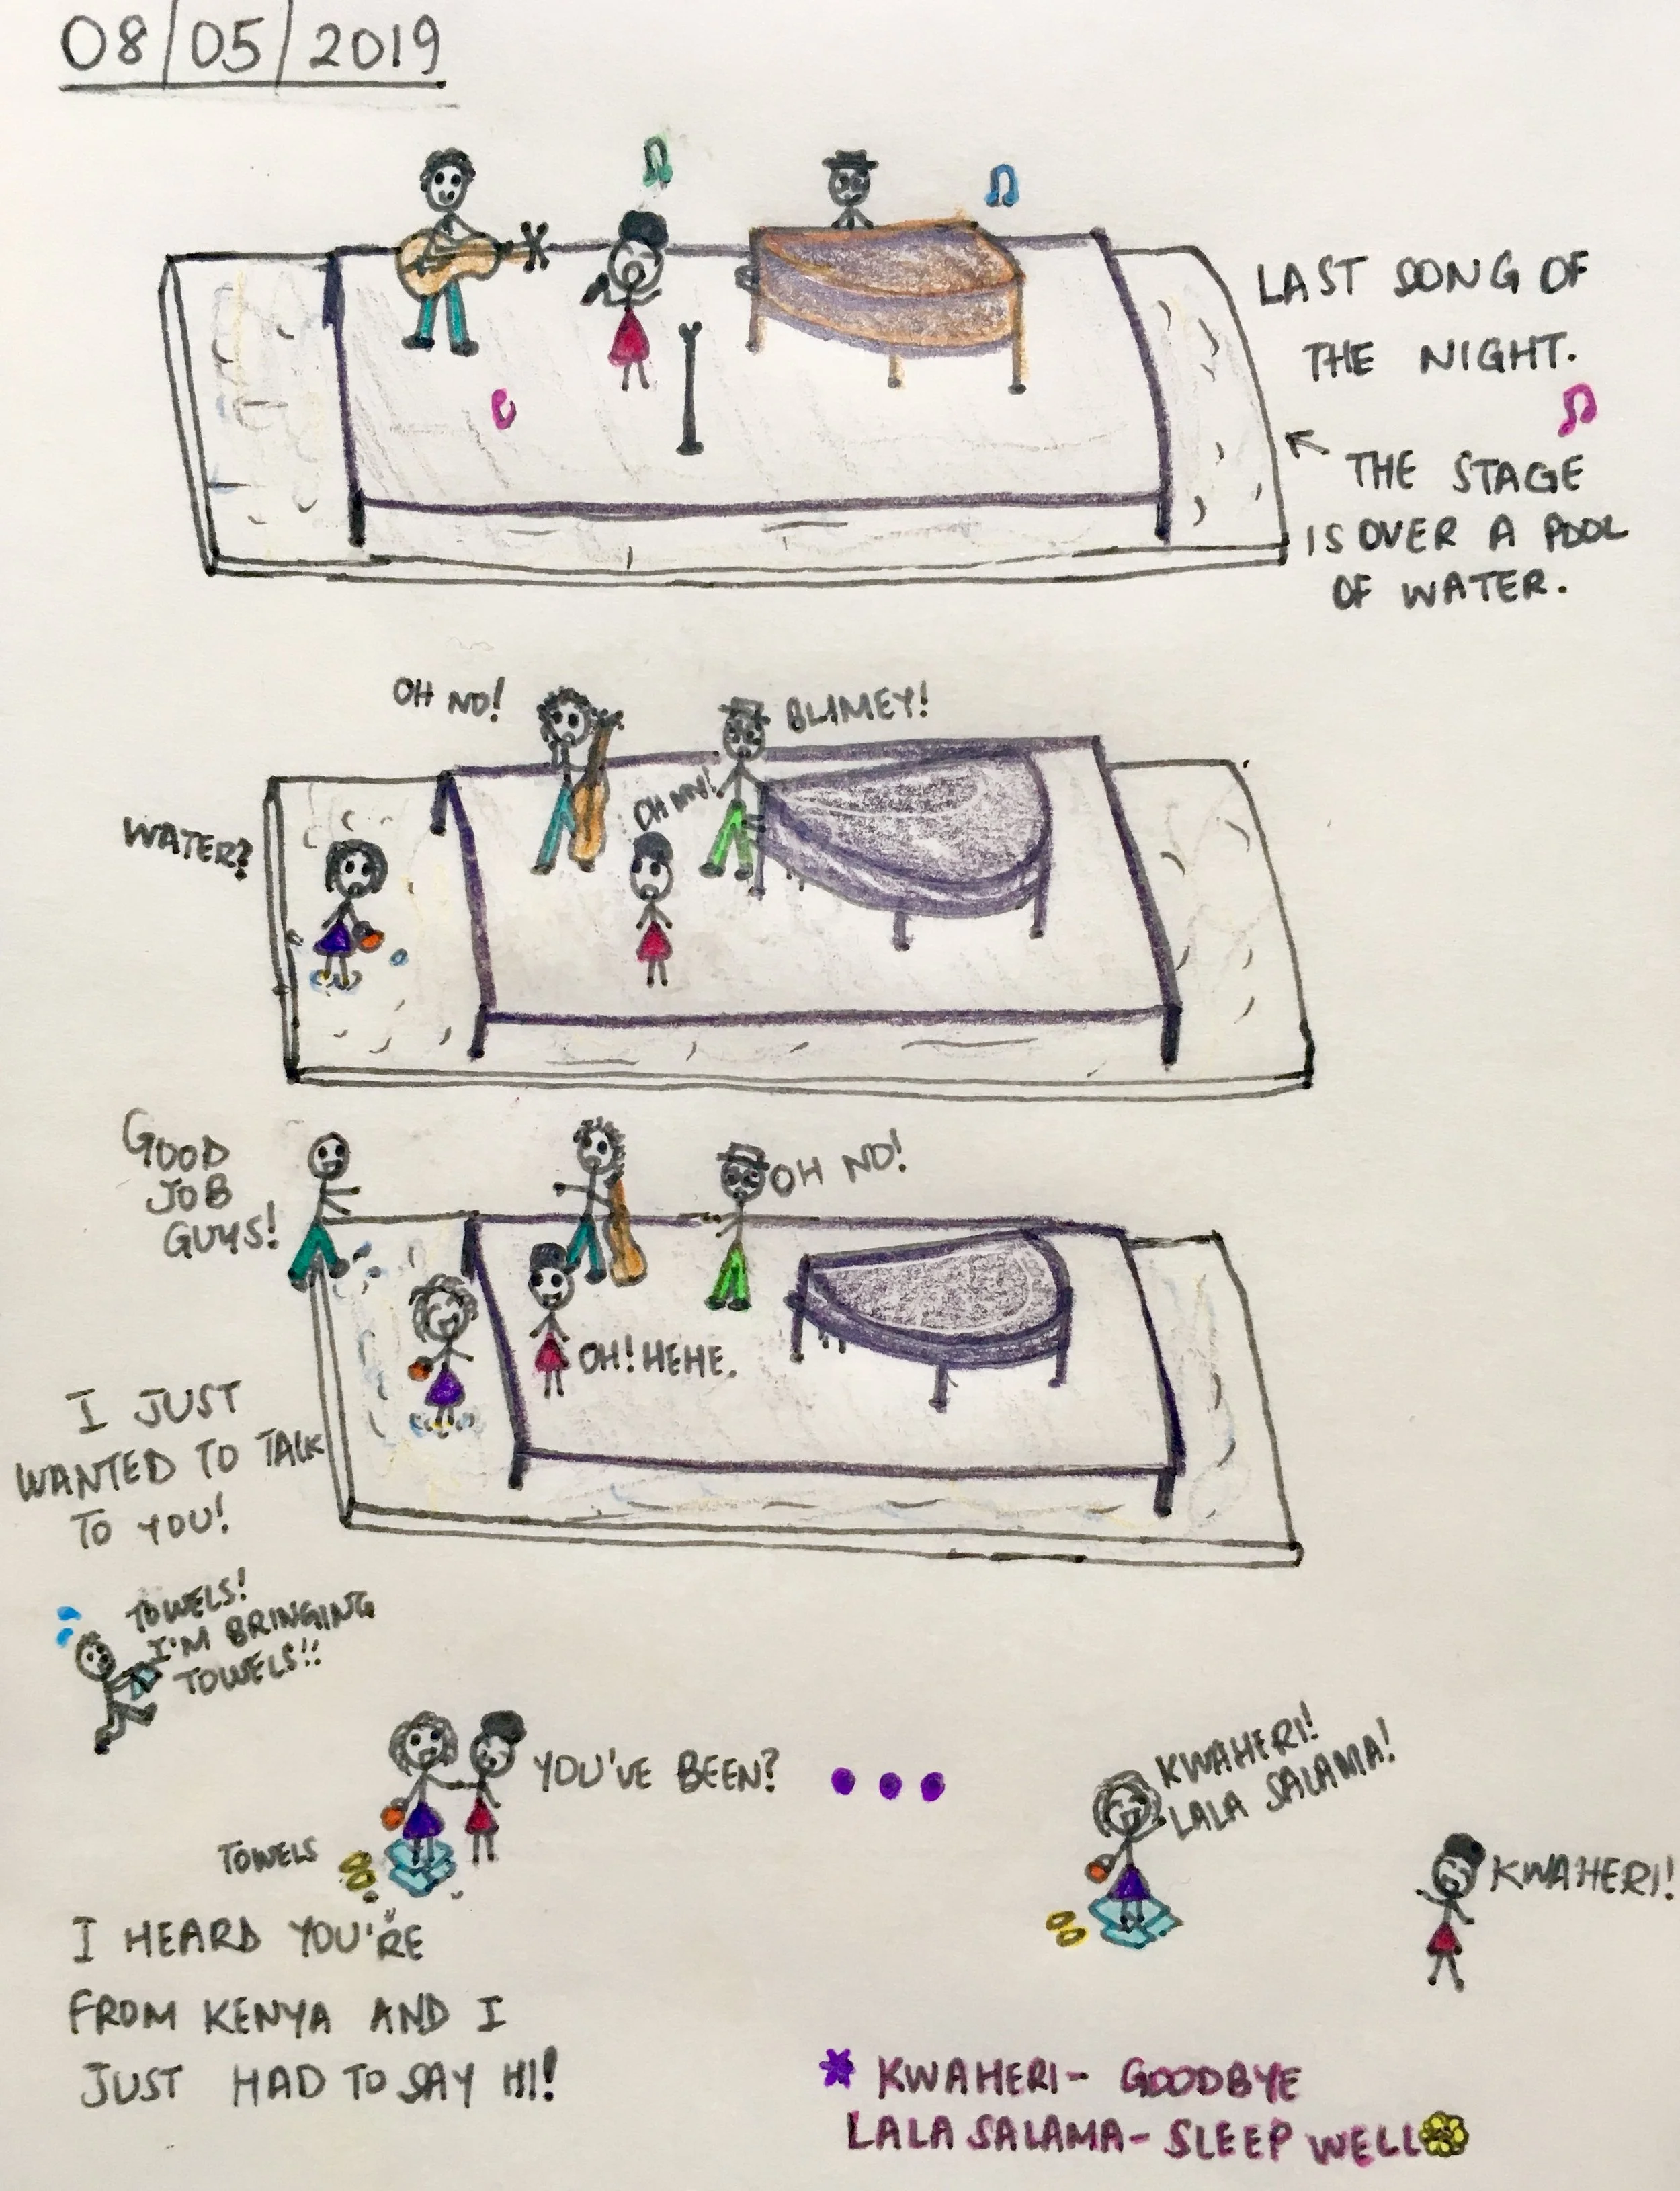 08/05/2019
LAST SONG OF
THE NIGHT.
THE STAGE
IS OVER A POOL
OF WATER.
OH NO!
BLIMEY!
OH MY!
WATER?
GOOD
JOB
GUYS!
OH NO!
OH! HEHE.
I JUST
WANTED TO TALK
TO YOU!
TOWELS!
I'M BRINGING
TOWELS!!
YOU'VE BEEN?
KWAHERI!
LALA SALAMA!
KWAHERI!
TOWELS
I HEARD YOU'RE
FROM KENYA AND I
JUST HAD TO SAY HI!
* KWAHERI- GOODBYE
LALA SALAMA- SLEEP WELL